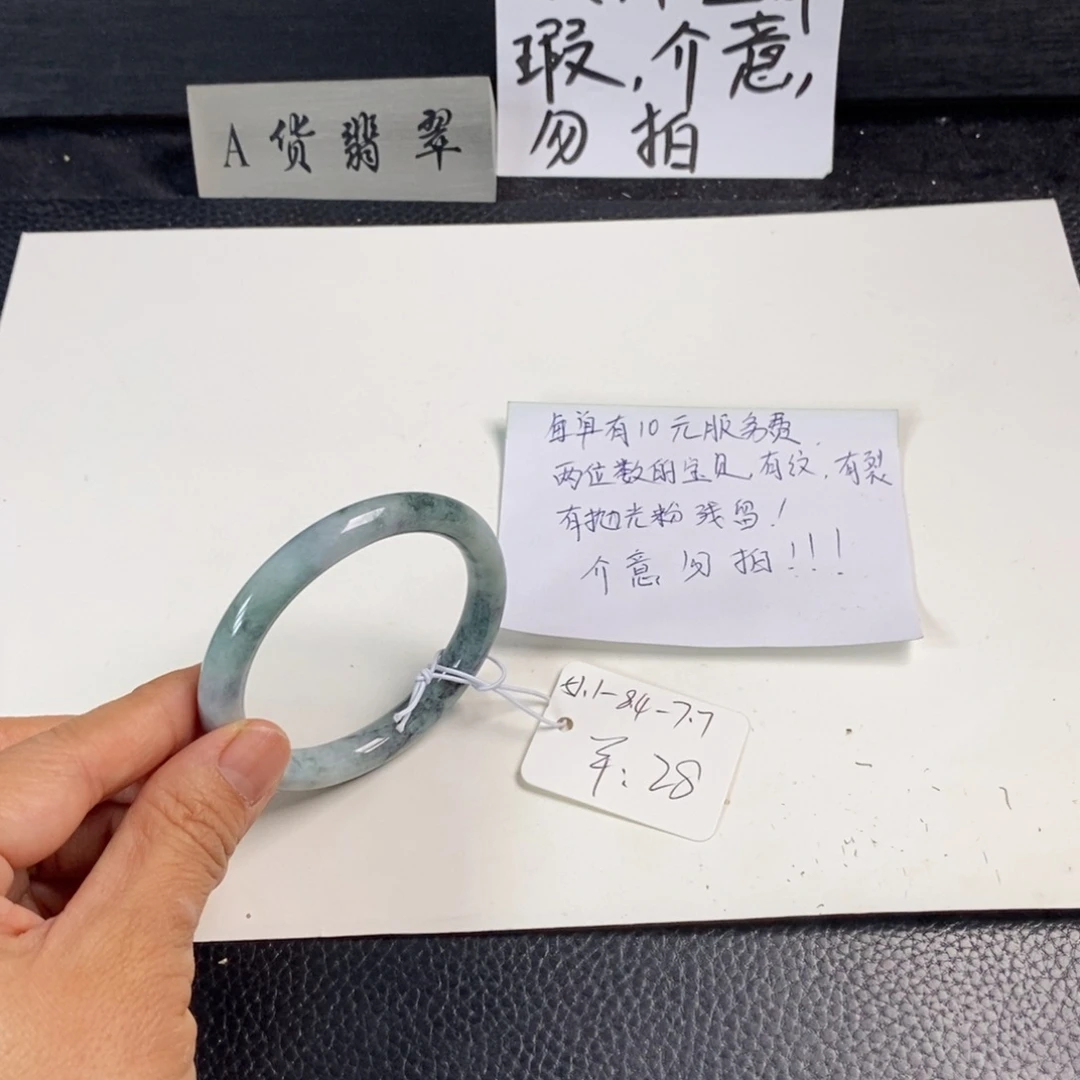 瑕,介意,
勿 拍
A 货 翡 翠
每单有10元服务费,
两位数的宝贝,有纹,有裂
有抛光粉残留!
介意勿拍!!!
51.1-8.4-7.7
¥:28